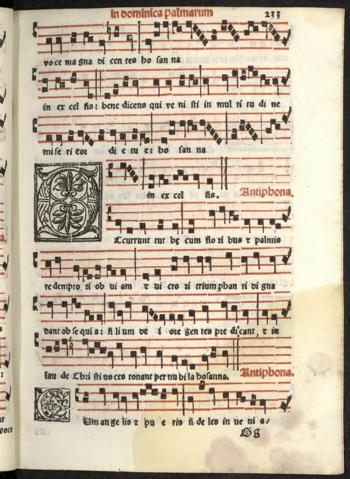 in dominica palmarum 233
vo ce ma gna di cen tes ho san na
in ex cel sis: bene dicens qui ve ni sti in mul ti tu di ne
mi se ri cor di e tu e: ho san na
in ex cel sis. Antiphona.
Occurrunt tur bę cum flo ri bus & palmis
re dempto ri ob vi am & vi cto ri trium phan ti di gna
dant ob se qui a: fi li um de i ore gen tes pre dicant, & in
lau de Chri sti vo ces tonant per nu bi la hosanna. Antiphona.
Cum an ge lis & pu e ris fi de les in ve ni a/
Gg